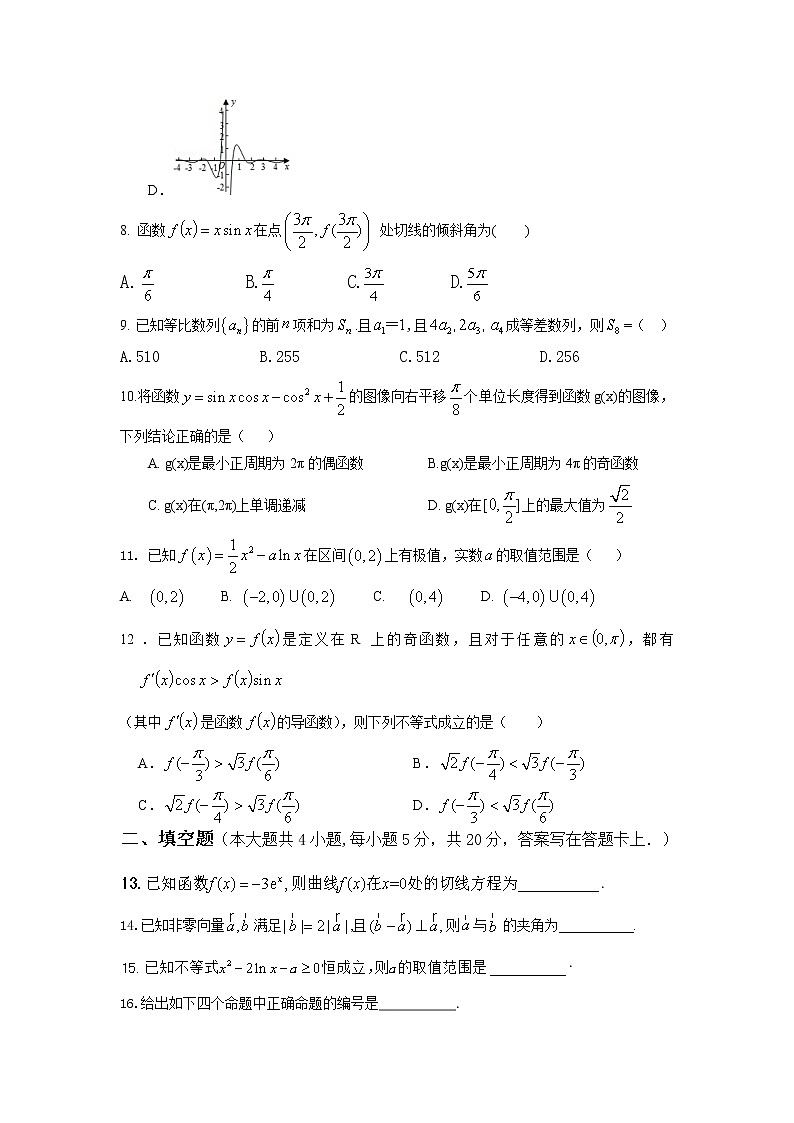 y
4
3
2
1
-4 -3 -2 -1 O 1 2 3 4 x
-1
-2
D.
8. 函数 f(x)=x sin x 在点 (3π/2, f(3π/2)) 处切线的倾斜角为( )
A. π/6 B. π/4 C. 3π/4 D. 5π/6
9. 已知等比数列{aₙ}的前n项和为Sₙ.且a₁=1,且4a₂,2a₃,a₄成等差数列，则S₈=( )
A.510 B.255 C.512 D.256
10.将函数 y=sin x cos x−cos² x+1/2 的图像向右平移 π/8 个单位长度得到函数 g(x)的图像，
下列结论正确的是( )
A. g(x)是最小正周期为 2π 的偶函数 B.g(x)是最小正周期为 4π 的奇函数
C. g(x)在(π,2π)上单调递减 D. g(x)在[0, π/2]上的最大值为 √2/2
11. 已知 f(x)=1/2 x²−a ln x 在区间(0,2)上有极值，实数a的取值范围是( )
A. (0,2) B. (−2,0)∪(0,2) C. (0,4) D. (−4,0)∪(0,4)
12 . 已知函数 y=f(x)是定义在 R 上的奇函数，且对于任意的 x∈(0,π)，都有
f′(x)cos x>f(x)sin x
(其中 f′(x)是函数 f(x)的导函数)，则下列不等式成立的是( )
A. f(−π/3)>√3f(π/6) B. √2f(−π/4)<√3f(−π/3)
C. √2f(−π/4)>√3f(π/6) D. f(−π/3)<√3f(π/6)
二、填空题(本大题共 4 小题,每小题 5 分，共 20 分，答案写在答题卡上.)
13.已知函数f(x)=−3eˣ,则曲线f(x)在x=0处的切线方程为___________.
14.已知非零向量a,b满足|b|=2|a|,且(b−a)⊥a,则a与b的夹角为__________.
15. 已知不等式x²−2ln x−a≥0恒成立,则a的取值范围是__________.
16.给出如下四个命题中正确命题的编号是___________.